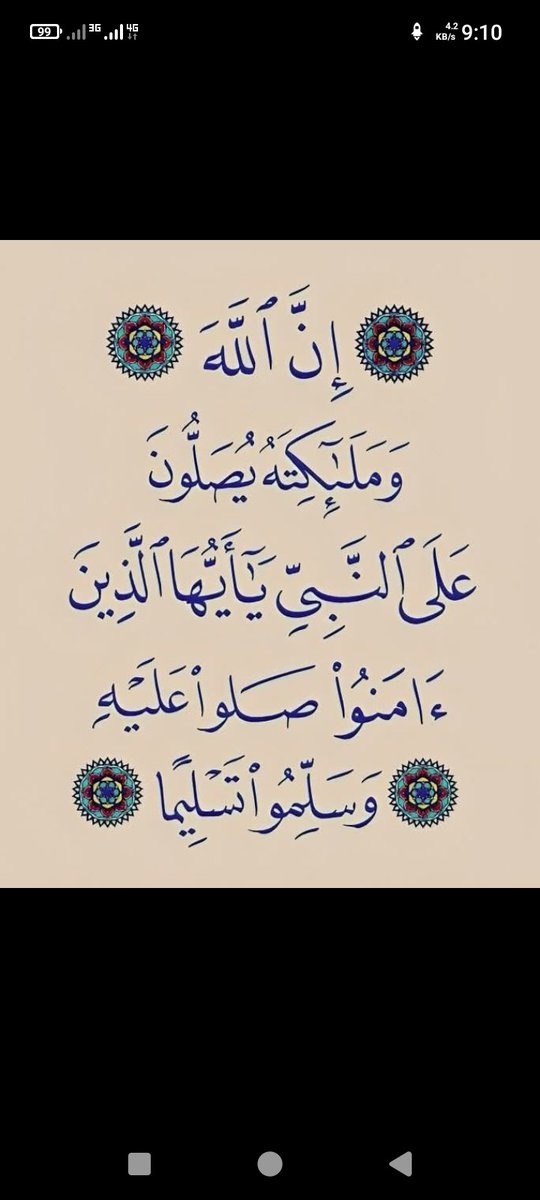 99 3G 4G 4.2 KB/s 9:10
إِنَّ ٱللَّهَ
وَمَلَـٰٓئِكَتَهُ يُصَلُّونَ
عَلَى ٱلنَّبِيِّ يَـٰٓأَيُّهَا ٱلَّذِينَ
ءَامَنُوا۟ صَلوا۟ عَلَيْهِ
وَسَلِّمُوا۟ تَسْلِيمًا